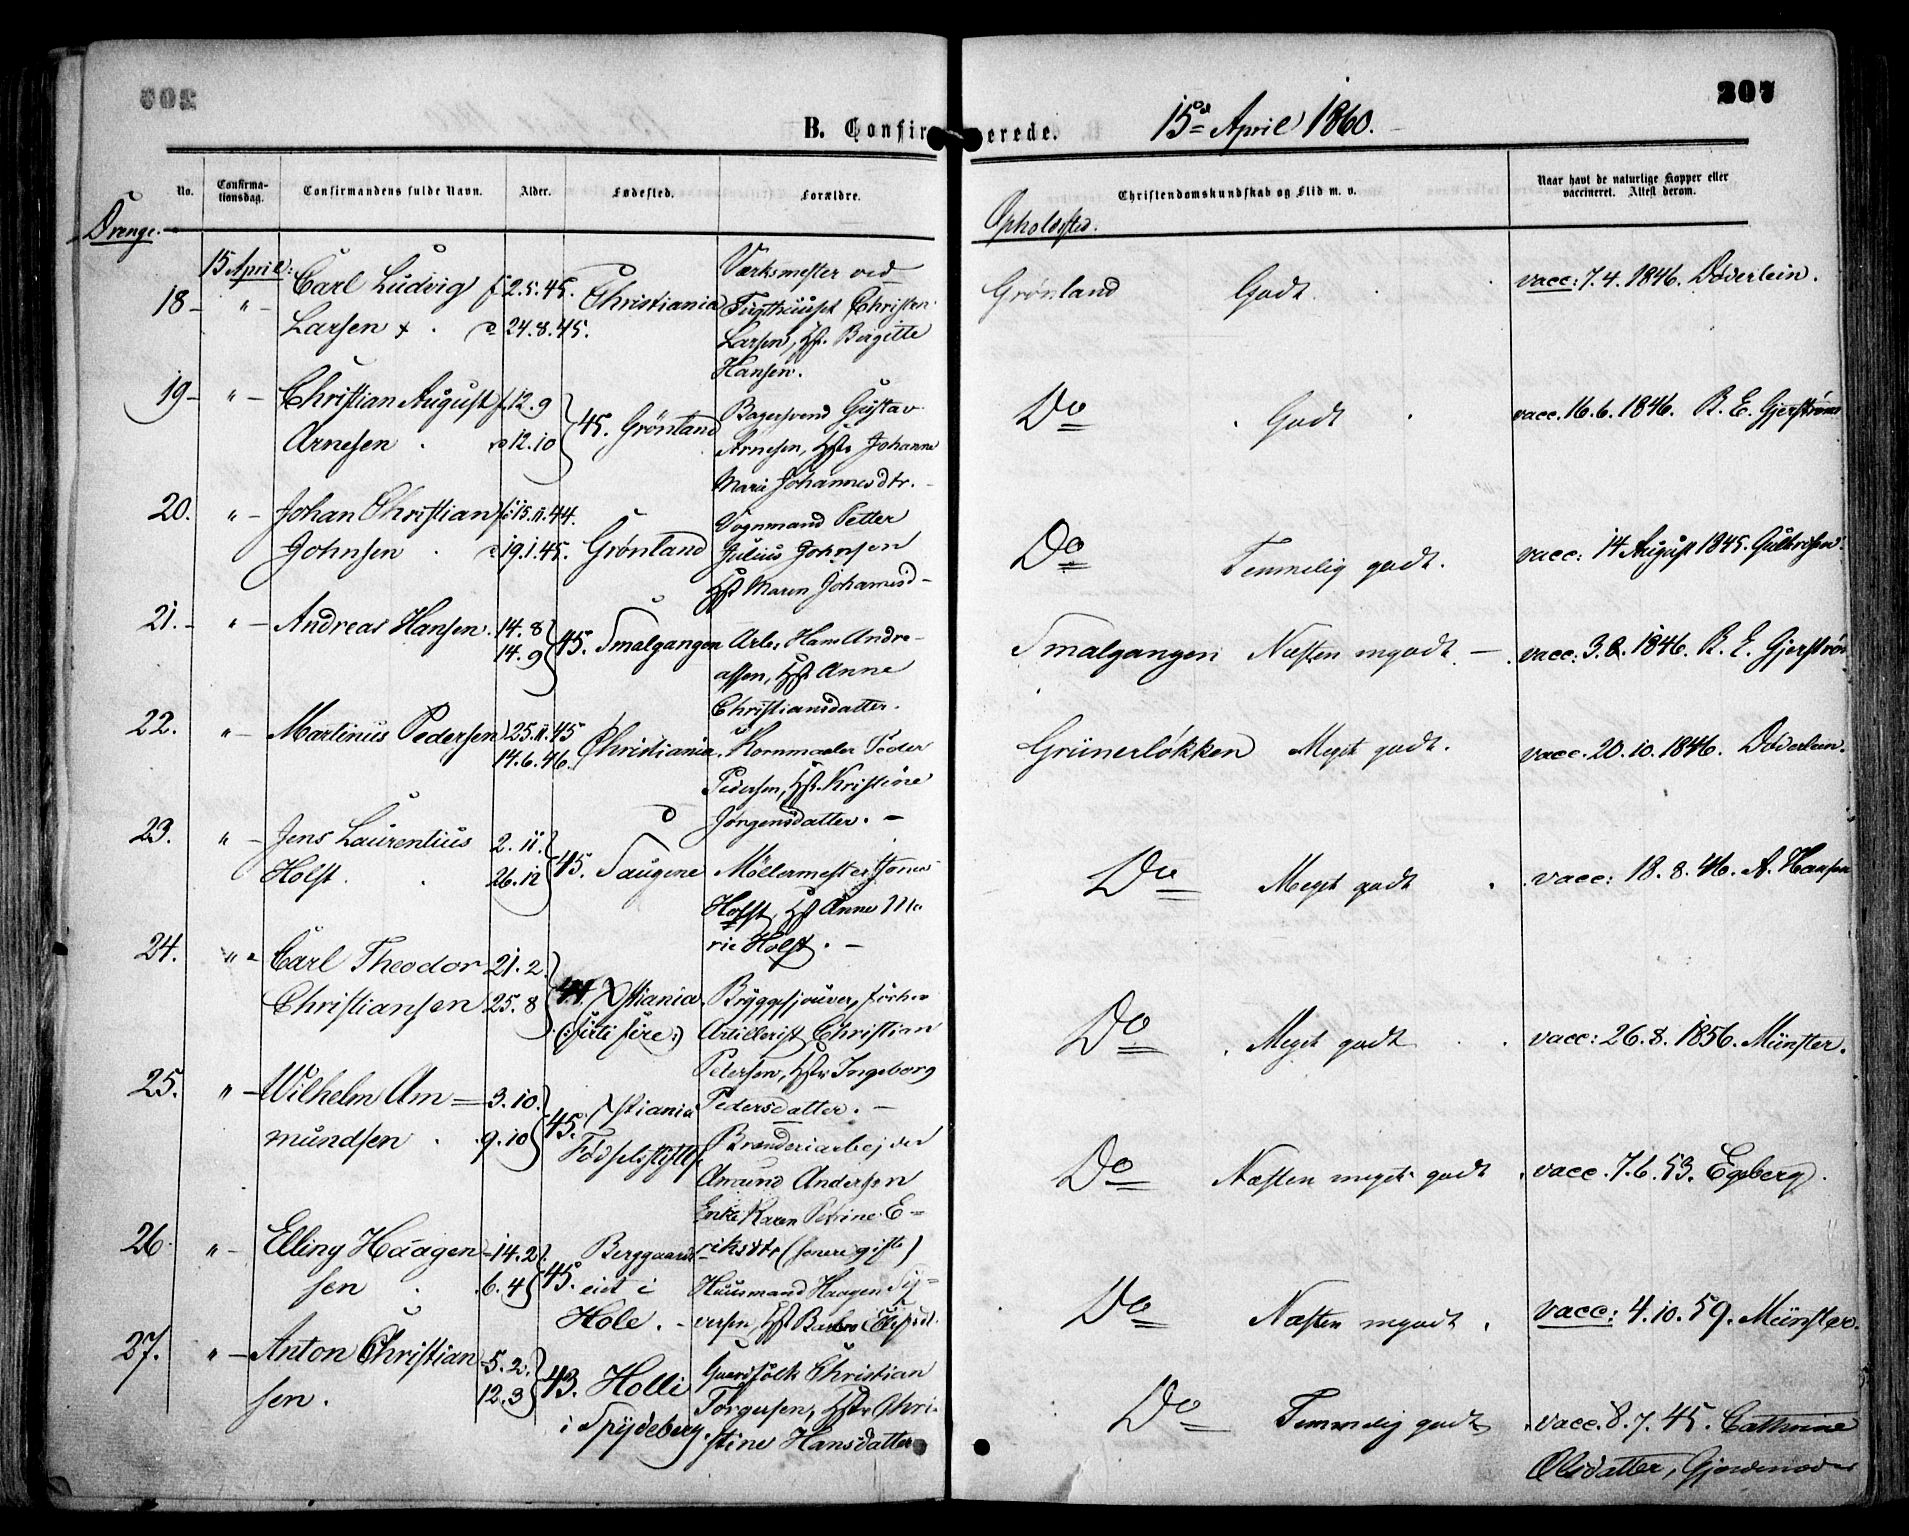 207
B. Confirmerede.
15de April 1860.
No.
Confirma-
tionsdag.
Confirmandens fulde Navn.
Alder.
Fødested.
Forældre.
Christendomskundskab og Flid m. v.
Naar havt de naturlige Kopper eller
vaccineret. Attest derom.
Drenge.
Opholdssted.
15 April:
18 - " - Carl Ludvig f. 2.5.45. Christiania Værksmester ved Grønland Godt. vacc: 7.4.1846. Døderlein.
Larsen x . D 24.8.45. Tugthuuset Christen
Larsen, Hst. Birgitte
Hansen.
19 - " - Christian August f. 12.9 45. Grønland Bagersvend Gustav Do Godt vacc. 16.6.1846. R. E. Gjerstrøm
Arnesen . D 12.10 Arnesen, Hst. Johanne
Marie Johannesdtr. -
20. " - Johan Christian f. 15.11.44. Grønland Vognmand Petter Do Temmelig godt. vacc: 14 August 1845. Gulbrisen
Johnsen . D 19.1.45. Julius Johnsen
Hst Maren Johannsd -
21. - " - Andreas Hansen. 14.8 45. Smalgangen Arb. Hans Andre- Smalgangen Næsten mgodt - vacc: 3.8.1846. R. E. Gjerstrøm
14.9 assen, Hst. Anne
Christiansdatter.
22. " - Martinus Pedersen 25.11.45 Christiania. Kornmaaler Peder Grünerløkken Meget godt. vacc. 20.10.1846. Døderlein.
14.6.46. Pedersen, Hst. Kristine
Jørgensdatter. -
23. " - Jens Laurentius 2.11. 45. Saugene Møllermester Jonas Do Meget godt vacc: 18.8.46. A. Hansen
Holst. . 26.12 Holst, Hst Anne Ma
rie Holst. -
24. " - Carl Theodor 21.2. 44. Xstiania. Bryggesjouer, forhen Do Meget godt vacc: 26.8.1856. Münster.
Christiansen 25.8 (: firti fire :) Artillerist Christian
Petersen, Hst. Ingeborg
Pedersdatter. -
25. " - Wilhelm Am= 3.10. 45. Xstiania Brænderiarbejder Do Næsten meget godt vacc. 7.6.53. Egeberg.
mundsen . 9.10 Fødselsstiftelse Amund Andersen
Enke Karen Petrine E-
riksdtr (senere gift)
26 " - Elling Haagen 14.2 45. Berggaards Huusmand Haagen Sy= Do Næsten mgodt . vacc: 4.10.59. Münster.
sen . 6.4 eiet i
Hole. - versen, Hst Barbro
27. " - Anton Christian 5.2. 43. Holli Gaardfolk Christian Do Temmelig godt vacc. 8.7.45. Cathrine
sen. 12.3 i Spydeberg. Torgersen, Hst. Chri-
stine Hansdatter Olsdatter, Gjordemoder